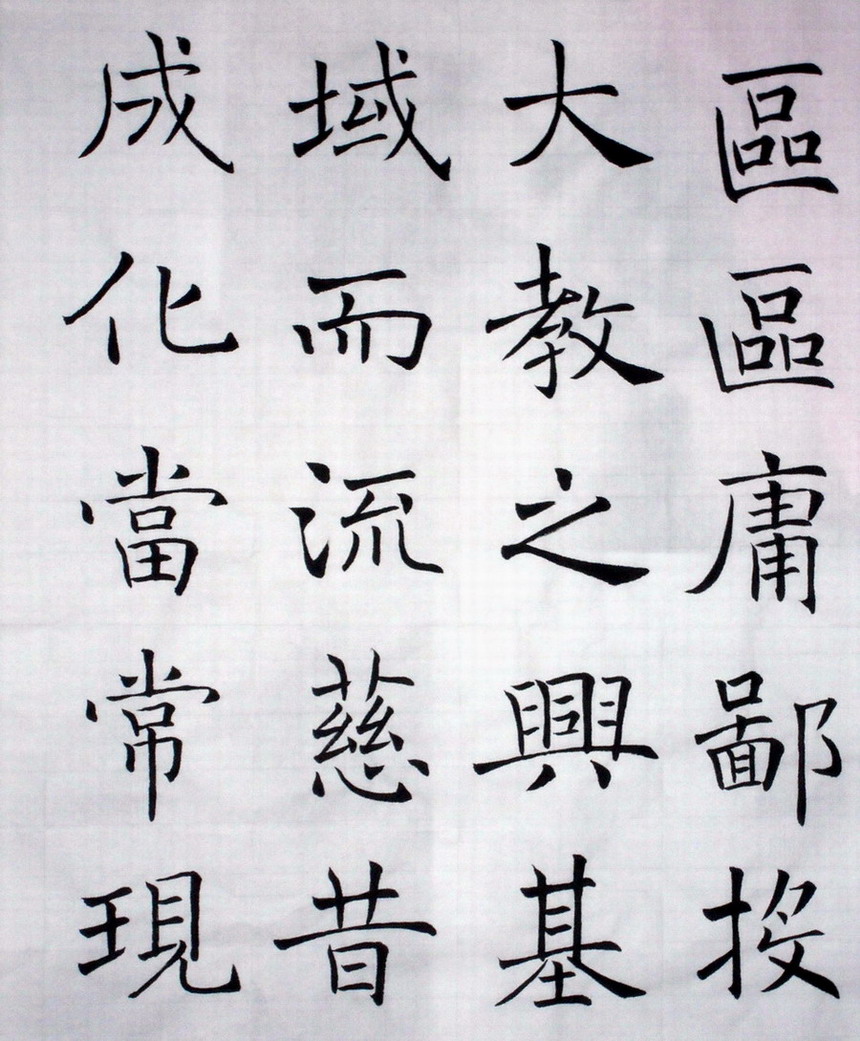 區區庸鄙投
大教之興基
域而流慈昔
成化當常現